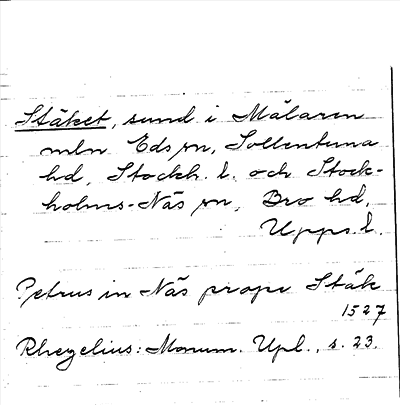 Stäket, sund i Mälaren
mln Eds sn, Sollentuna
hd, Stockh. l. och Stock-
holms-Näs sn, Bro hd,
Upps. l.
Petrus in Näs prope Stäk
1527
Rhezelius: Monum. Upl., s. 23.